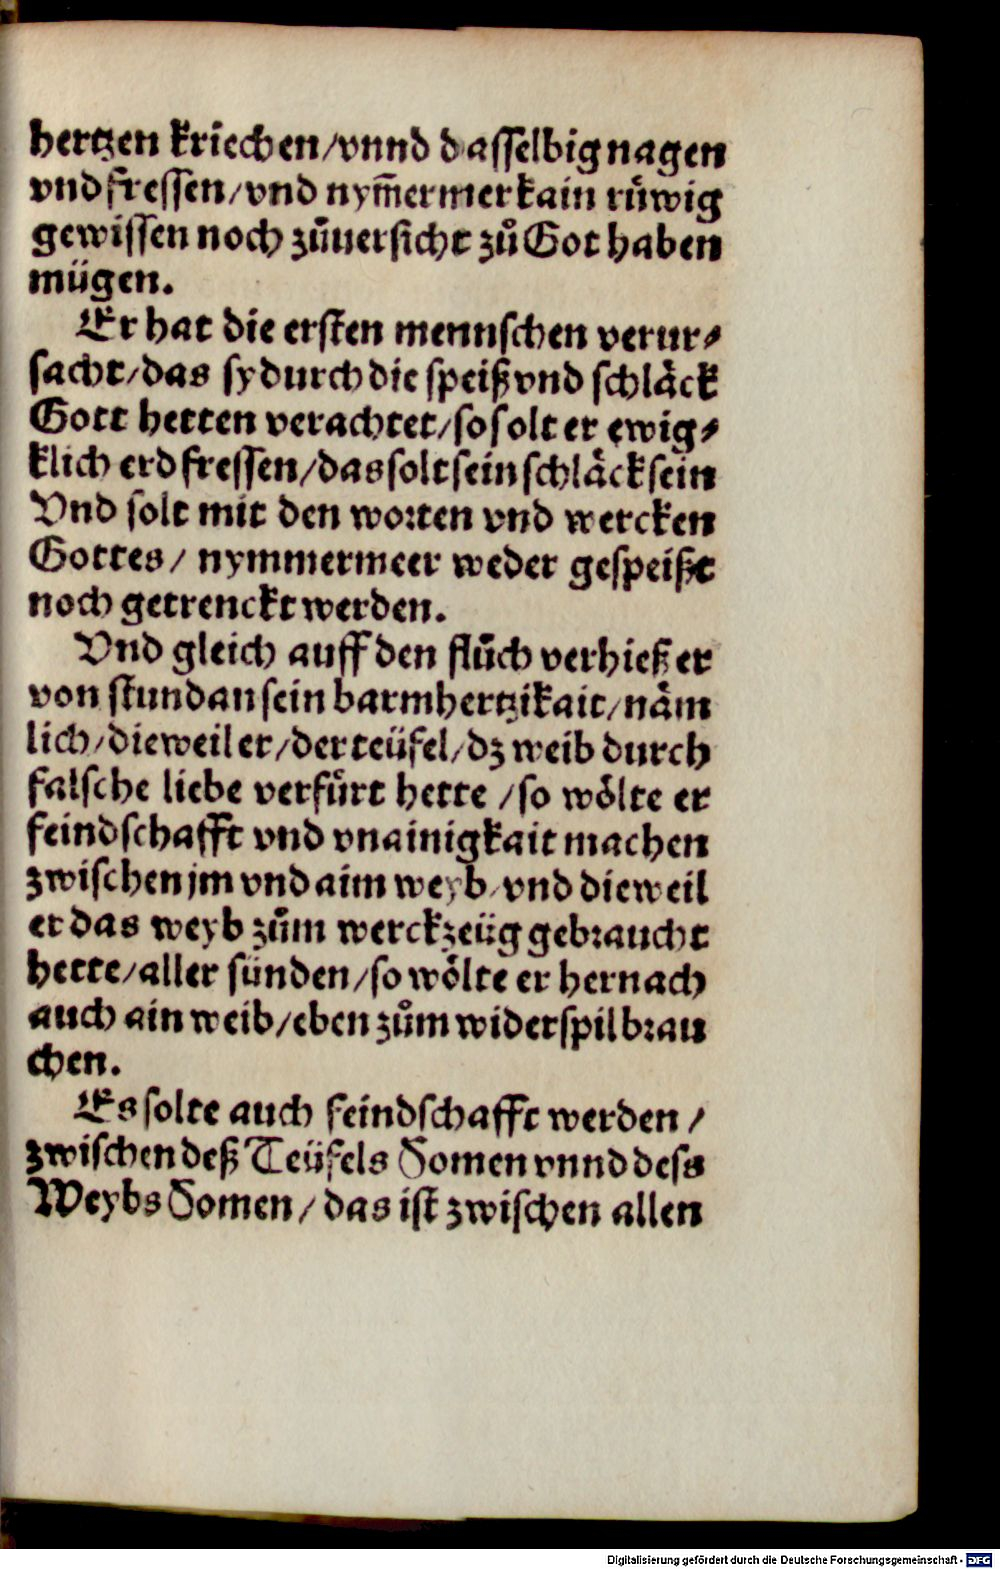 hertzen kriechen/vnnd dasselbig nagen
vnd fressen/vnd nym̃ermer kain růwig
gewissen noch zůuersicht zů Got haben
mügen.
Er hat die ersten mennschen verur⸗
sacht/das sy durch die speiß vnd schläck
Gott hetten verachtet/so solt er ewig⸗
klich erd fressen/das solt sein schläck sein
Vnd solt mit den worten vnd wercken
Gottes/ nymmermeer weder gespeißt
noch getrenckt werden.
Vnd gleich auff den flůch verhieß er
von stundan sein barmhertzikait/näm
lich/dieweil er/der teüfel/dz weib durch
falsche liebe verfůrt hette /so wölte er
feindschafft vnd vnainigkait machen
zwischen jm vnd aim weyb/vnd dieweil
er das weyb zům werckzeüg gebraucht
hette/aller sünden/so wölte er hernach
auch ain weib/eben zům widerspil brau
chen.
Es solte auch feindschafft werden /
zwischen deß Teüfels Somen vnnd dess
Weybs Somen/das ist zwischen allen
Digitalisierung gefördert durch die Deutsche Forschungsgemeinschaft - DFG